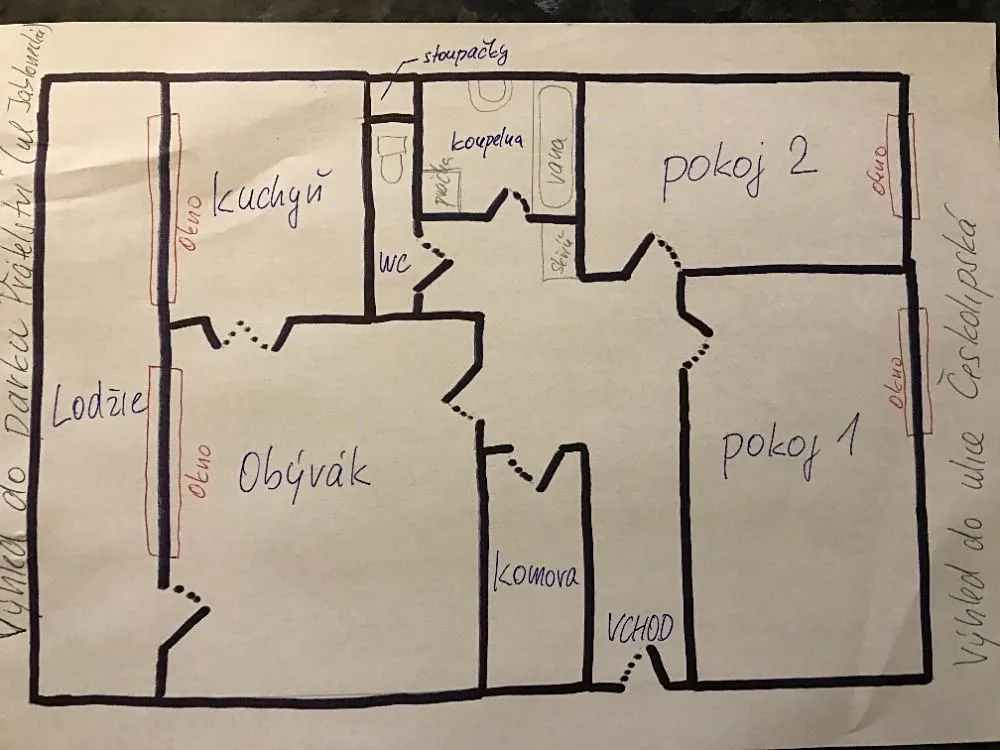 Výhled do Parku Přátelství (ul Jablonecká)
stoupačky
kuchyň
okno
WC
koupelna
pračka
vana
skříň
pokoj 2
okno
Lodžie
okno
Obývák
komora
VCHOD
pokoj 1
okno
Výhled do ulice Českolipská